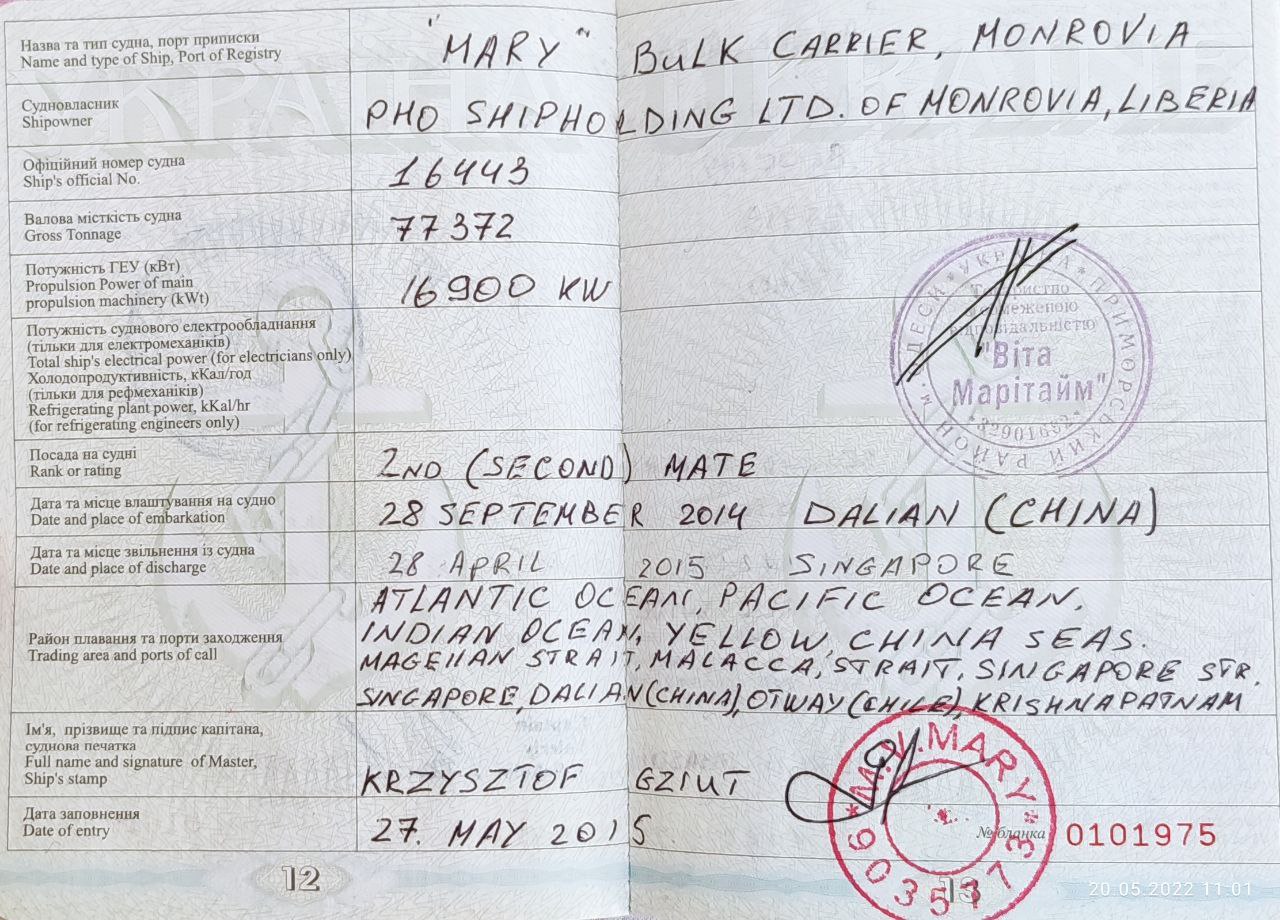 Назва та тип судна, порт приписки
Name and type of Ship, Port of Registry
"MARY" BULK CARRIER, MONROVIA
Судновласник
Shipowner
PHO SHIPHOLDING LTD. OF MONROVIA, LIBERIA
Офіційний номер судна
Ship's official No.
16443
Валова місткість судна
Gross Tonnage
77372
Потужність ГЕУ (кВт)
Propulsion Power of main
propulsion machinery (kWt)
16900 KW
Потужність суднового електрообладнання
(тільки для електромеханіків)
Total ship's electrical power (for electricians only)
Холодопродуктивність, кКал/год
(тільки для рефмеханіків)
Refrigerating plant power, kKal/hr
(for refrigerating engineers only)
УКРАЇНА * ПРИМОРСЬКИЙ РАЙОН М. ОДЕСИ *
Товариство
з обмеженою
відповідальністю
"Віта
Марітайм"
Посада на судні
Rank or rating
2ND (SECOND) MATE
Дата та місце влаштування на судно
Date and place of embarkation
28 SEPTEMBER 2014 DALIAN (CHINA)
Дата та місце звільнення із судна
Date and place of discharge
28 APRIL 2015 SINGAPORE
Район плавання та порти заходження
Trading area and ports of call
ATLANTIC OCEAN, PACIFIC OCEAN,
INDIAN OCEAN, YELLOW, CHINA SEAS.
MAGELLAN STRAIT, MALACCA, STRAIT, SINGAPORE STR.
SINGAPORE, DALIAN (CHINA), OTWAY (CHILE), KRISHNAPATNAM
Ім'я, прізвище та підпис капітана,
суднова печатка
Full name and signature of Master,
Ship's stamp
KRZYSZTOF GZIUT
M.V. MARY
* 9603573 *
Дата заповнення
Date of entry
27. MAY 2015
№ бланка 0101975
12
13
20.05.2022 11:01